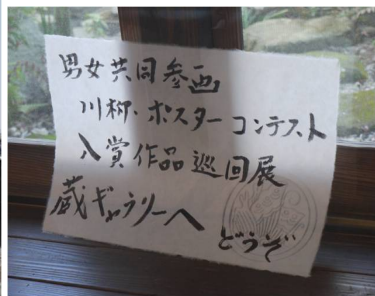 男女共同参画
川柳・ポスターコンテスト
入賞作品巡回展
蔵ギャラリーへ
どうぞ